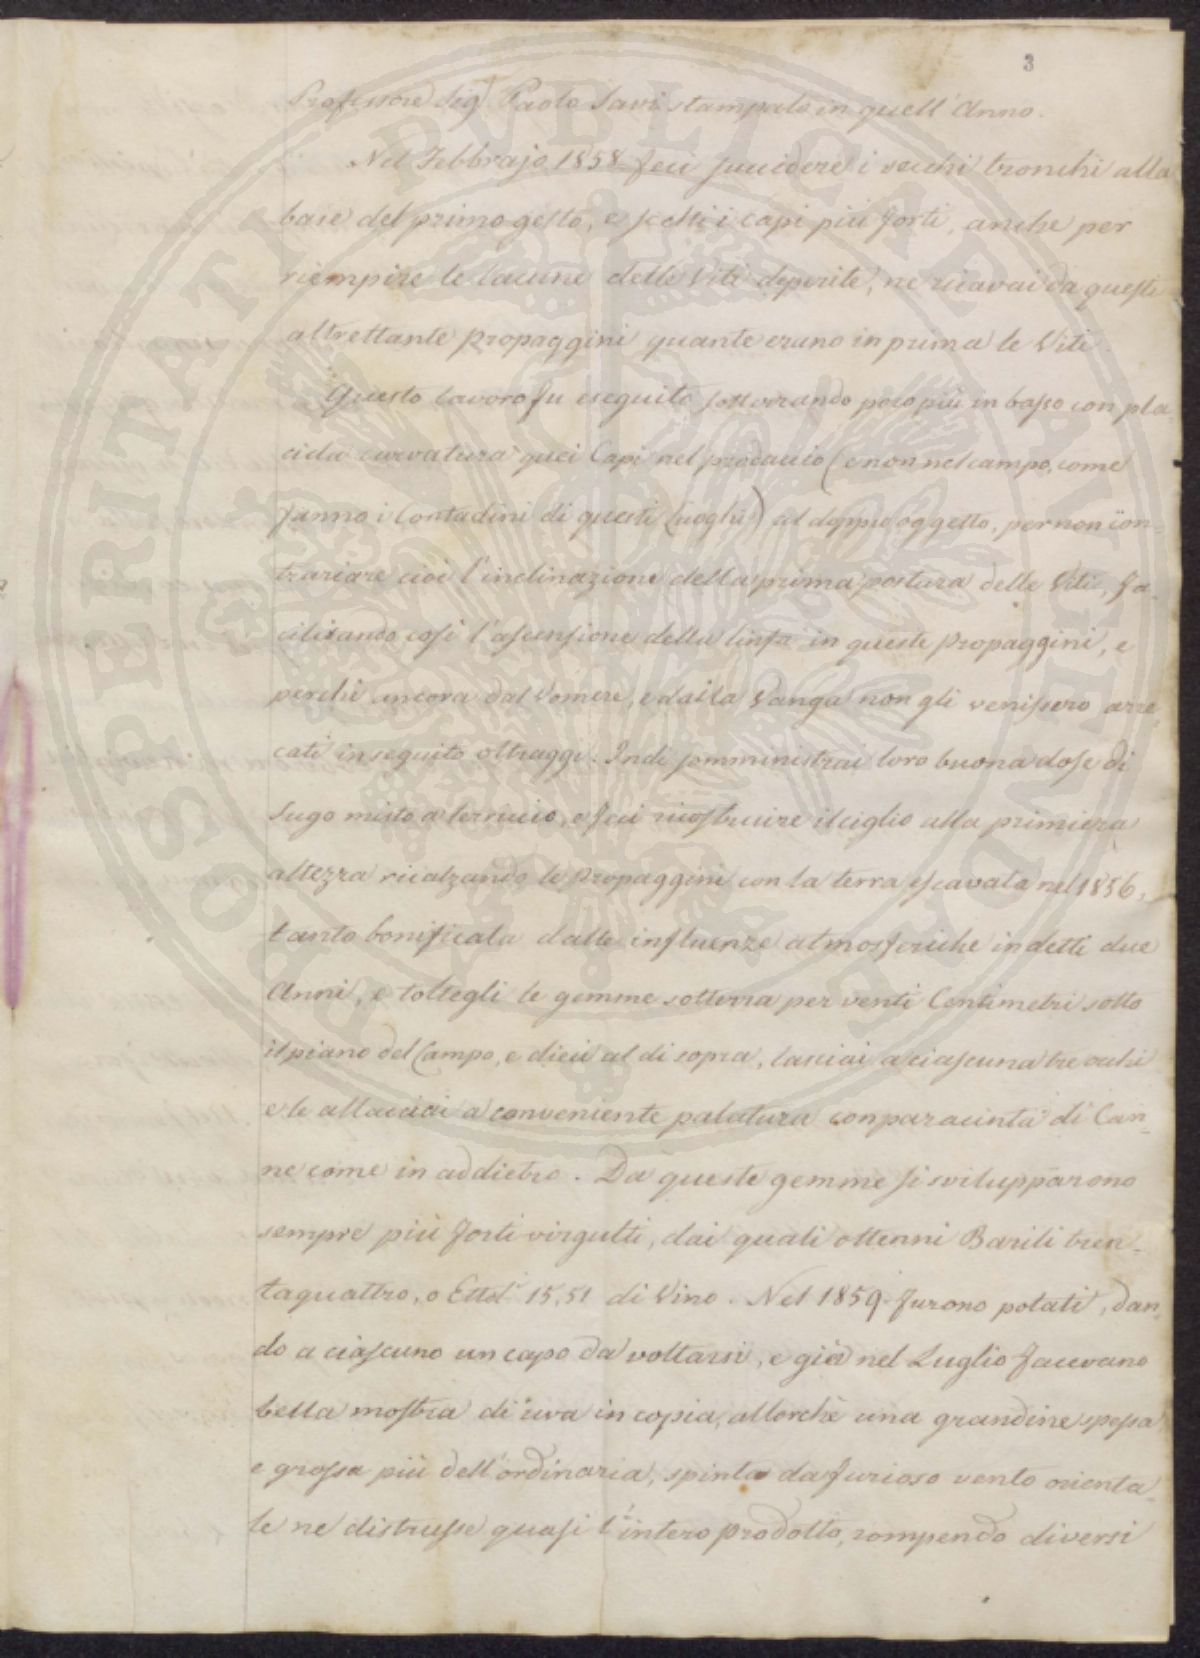 3
Professore Sig.r Paolo Savi stampato in quell'Anno.
Nel Febbrajo 1858 feci succidere i vecchi tronchi alla
base del primo gesto, e scelti i capi più forti, anche per
riempire le lacune delle Viti deperite, ne ricavai da questi
altrettante propaggini quante erano in prima le Viti.
Questo lavoro fu eseguito sotterrando poco più in basso con pla-
cida curvatura quei Capi nel prodaccio (e non nel campo, come
fanno i Contadini di questi luoghi) al doppio oggetto, per non con-
trariare cioè l'inclinazione della prima postura delle Viti, fa-
cilitando così l'ascensione della linfa in queste propaggini, e
perchè ancora dal Vomere, e dalla Vanga non gli venissero arre-
cati in seguito oltraggi. Indi somministrai loro buona dose di
Sugo misto a terriccio, e feci ricostruire il ciglio alla primiera
altezza ricalzando le propaggini con la terra escavata nel 1856,
tanto bonificata dalle influenze atmosferiche in detti due
Anni, e toltegli le gemme sotterra per venti Centimetri sotto
il piano del Campo, e dieci al di sopra, lasciai a ciascuna tre occhi
e le allacciai a conveniente palatura con paracinta di Can-
ne come in addietro. Da queste gemme si svilupparono
sempre più forti virgulti, dai quali ottenni Barili tren-
taquattro, o Ettol. 15,51 di Vino. Nel 1859 furono potati, dan-
do a ciascuno un capo da voltarsi, e già nel Luglio facevano
bella mostra di uva in copia, allorchè una grandine spessa
e grossa più dell'ordinaria, spinta da furioso vento orienta-
le ne distrusse quasi l'intero prodotto, rompendo diversi
PROSPERITATI PVBLICAE AVGENDAE